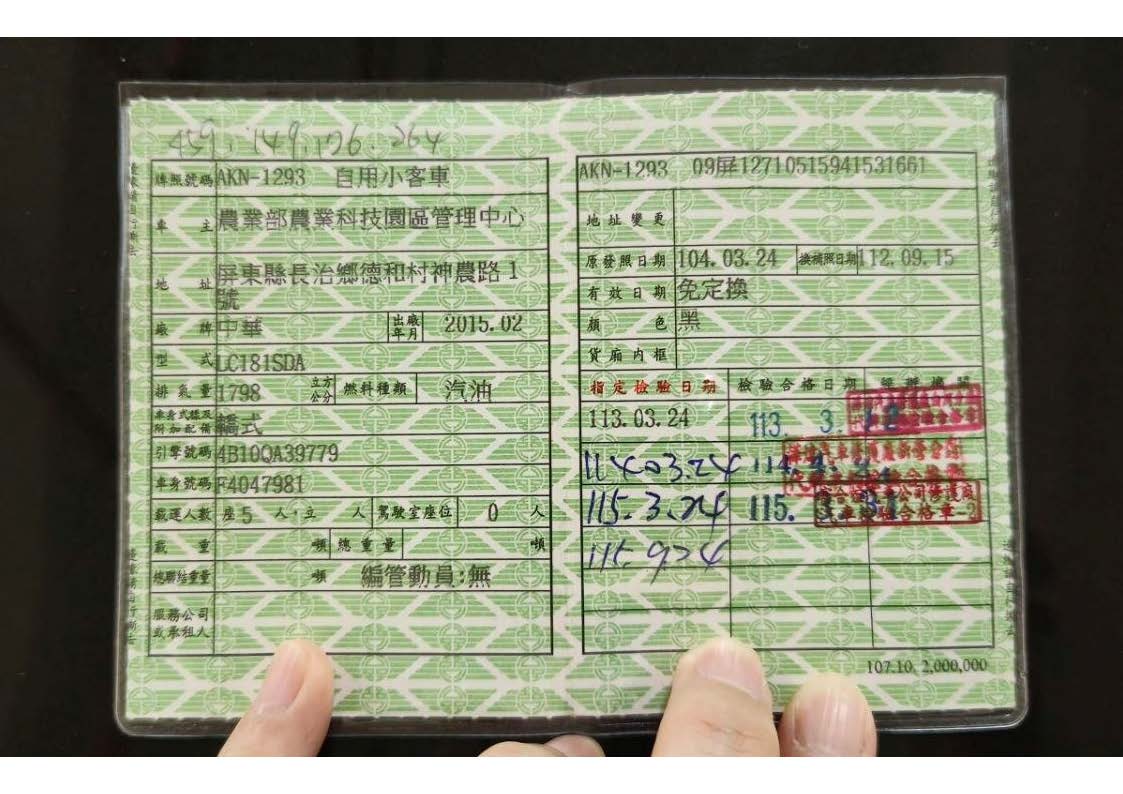 459.149.176.264
牌照號碼 AKN-1293 自用小客車
車主 農業部農業科技園區管理中心
地址 屏東縣長治鄉德和村神農路1
號
廠牌 中華 出廠年月 2015.02
型式 LC181SDA
排氣量 1798 立方公分 燃料種類 汽油
車身式樣及附加配備 轎式
引擎號碼 4B10QA39779
車身號碼 F4047981
載運人數 座5人,立 人 駕駛室座位 0 人
載重 噸 總重量 噸
總聯結重量 噸 編管動員:無
服務公司
或承租人
AKN-1293 09屏12710515941531661
地址變更
原發照日期 104.03.24 換補照日期 112.09.15
有效日期 免定換
顏色 黑
貨廂內框
指定檢驗日期 檢驗合格日期
113.03.24 113. 3. 12
114.03.24 114. 4.
115.3.24 115. 3.
115.9.24
107.10. 2,000,000